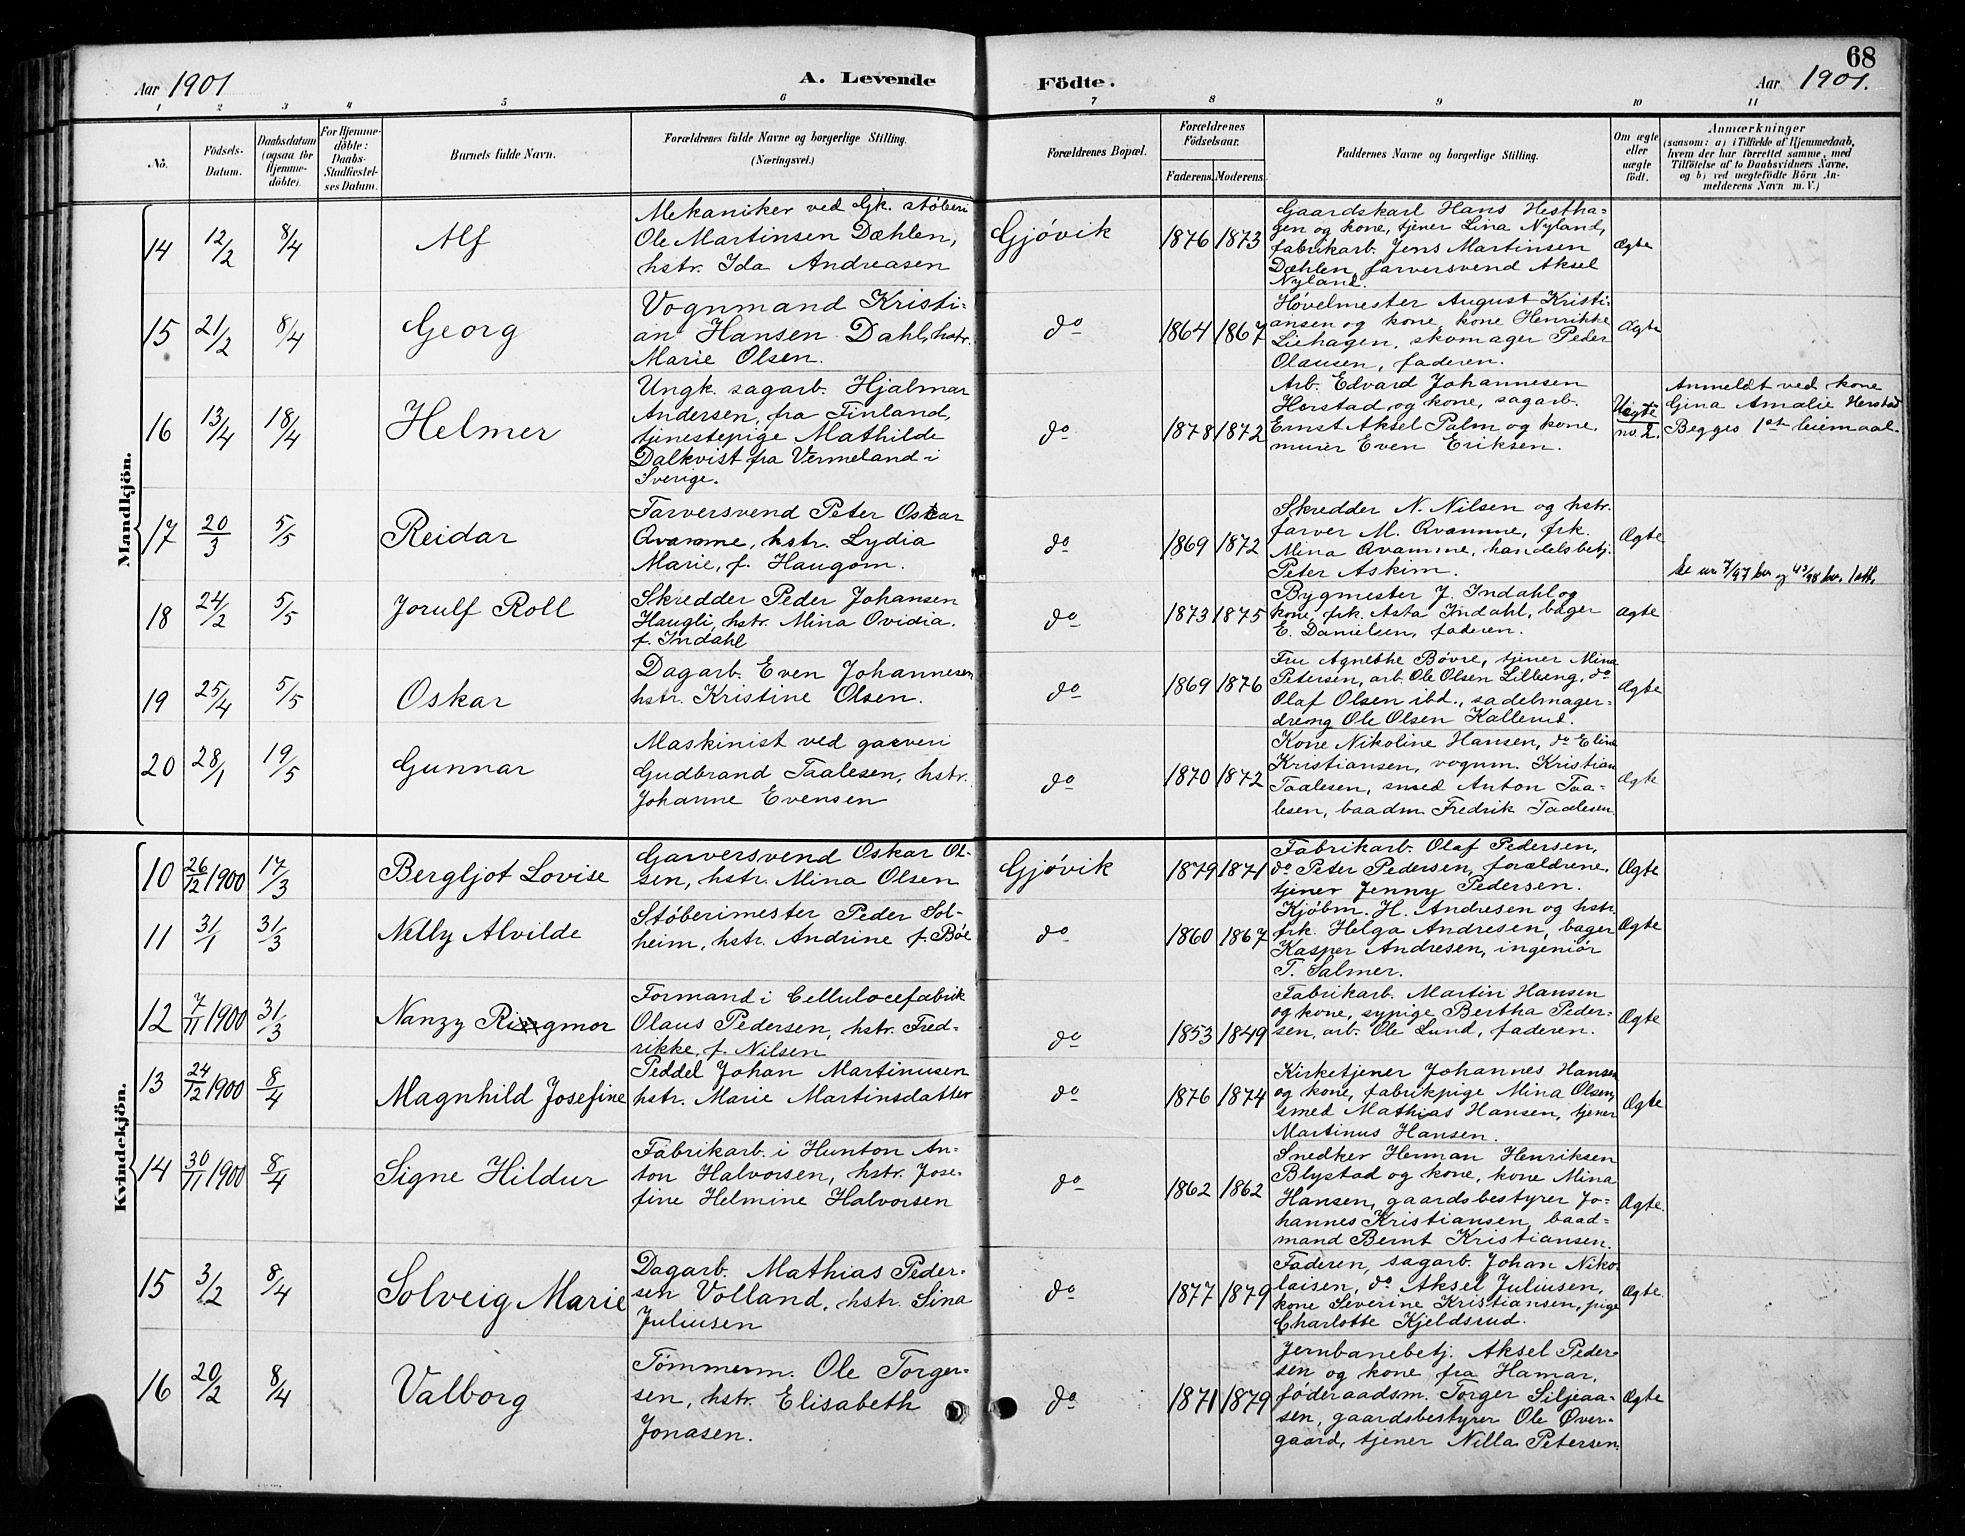 68
Aar 1901
A. Levende
Födte.
Aar 1901.
1 2 3 4 5 6 7 8 9 10 11
No.
Födsels-
Datum.
Daabsdatum
(ogsaa for
Hjemme-
döbte).
For Hjemme-
döbte:
Daabs-
Stadfæstel-
ses Datum.
Barnets fulde Navn.
Forældrenes fulde Navne og borgerlige Stilling.
(Næringsvei.)
Forældrenes Bopæl.
Forældrenes
Födselsaar.
Faderens. Moderens.
Faddernes Navne og borgerlige Stilling.
Om ægte
eller
uægte
födt.
Anmærkninger
(saasom: a) i Tilfælde af Hjemmedaab,
hvem der har forrettet samme, med
Tilföielse af to Daabsvidners Navne,
og b) ved uægtefödte Börn An-
melderens Navn m. V.)
Mandkjön.
14 12/2 8/4 Alf
Mekaniker ved Gjk. støberi
Ole Martinsen Dæhlen,
hstr. Ida Andreasen
Gjøvik 1876 1873
Gaardskarl Hans Hestha-
gen og kone, tjener Lina Nyland,
fabrikarb. Jens Martinsen
Dæhlen, farversvend Aksel
Nyland.
Ægte
15 21/2 8/4 Georg
Vognmand Kristi-
an Hansen Dahl, hstr.
Marie Olsen.
do 1864 1867
Høvelmester August Kristi-
ansen og kone, kone Henrikke
Liehagen, skomager Peder
Olausen, faderen.
Ægte
16 13/4 18/4 Helmer
Ungk. sagarb. Hjalmar
Andersen, fra Finland,
tjenestepige Mathilde
Dalkvist fra Vermeland i
Sverige.
do 1878 1872
Arb. Edvard Johannesen
Herstad og kone, sagarb.
Ernst Aksel Palm og kone,
murer Even Eriksen.
Uægte
no. 2.
Anmeldt ved kone
Gina Amalie Herstad
Begges 1st leiermaal.
17 20/3 5/5 Reidar
Farversvend Peter Oskar
Qvamme, hstr. Lydia
Marie, f. Haugom.
do 1869 1872
Skredder N. Nilsen og hstr.
farver M. Qvamme, frk.
Mina Qvamme, handelsbetj.
Peter Askim.
Ægte
Se nr. 7/97 kv. og 43/98 kv.
18 24/2 5/5 Jorulf Roll
Skredder Peder Johansen
Haugli, hstr. Mina Ovidia,
f. Indahl
do 1873 1875
Bygmester J. Indahl og
kone, frk. Asta Indahl, bager
E. Danielsen, faderen.
Ægte
19 25/4 5/5 Oskar
Dagarb. Even Johannesen
hstr. Kristine Olsen.
do 1869 1876
Fru Agnethe Bøvre, tjener Mina
Petersen, arb. Ole Olsen Lilleeng, do
Olaf Olsen ibd., sadelmager-
dreng Ole Olsen Kallerud.
Ægte
20 28/1 19/5 Gunnar
Maskinist ved garveri
Gudbrand Taalesen, hstr.
Johanne Evensen
do 1870 1872
Kone Nikoline Hansen, do Elina
Kristiansen, vognm. Kristian
Taalesen, smed Anton Taa-
lesen, baadm. Fredrik Taalesen
Ægte
Kvindekjön.
10 26/12 1900 17/3 Bergljot Lovise
Garversvend Oskar Ol-
sen, hstr. Mina Olsen
Gjøvik 1879 1871
Fabrikarb. Olaf Pedersen,
do Peter Pedersen, forældrene,
tjener Jenny Pedersen.
Ægte
11 31/1 31/3 Nelly Alvilde
Støberimester Peder Sol-
heim, hstr. Andrine f. Bøe
do 1860 1867
Kjøbm. H. Andresen og hstr.
frk. Helga Andresen, bager
Kasper Andresen, ingeniør
T. Salmer.
Ægte
12 7/11 1900 31/3 Nanzy Ringmor
Formand i Cellulocefabrik
Olaus Pedersen, hstr. Fred-
rikke, f. Nilsen
do 1853 1849
Fabrikarb. Martin Hansen
og kone, sypige Bertha Peder-
sen, arb. Ole Lund, faderen.
Ægte
13 24/12 1900 8/4 Magnhild Josefine
Peddel Johan Martinusen
hstr. Marie Martinsdatter
do 1876 1874
Kirketjener Johannes Hansen
og kone, fabrikpige Mina Olsen,
smed Mathias Hansen, tjener
Martinus Hansen.
Ægte
14 30/11 1900 8/4 Signe Hildur
Fabrikarb. i Hunton An-
ton Halvorsen, hstr. Jose-
fine Helmine Halvorsen
do 1862 1862
Snedker Herman Henriksen
Blystad og kone, kone Mina
Hansen, gaardsbestyrer Jo-
hannes Kristiansen, baad-
mand Bernt Kristiansen.
Ægte.
15 3/2 8/4 Solveig Marie
Dagarb. Mathias Peder-
sen Volland, hstr. Sina
Juliusen
do 1877 1879
Faderen, sagarb. Johan Niko-
laisen, do Aksel Juliusen,
kone Severine Kristiansen, pige
Charlotte Kjeldsrud.
Ægte.
16 20/2 8/4 Valborg
Tømmerm. Ole Torger-
sen, hstr. Elisabeth
Jonasen.
do 1871 1879
Jernbanebetj. Aksel Peder-
sen og kone fra Hamar,
føderaadsm. Torger Siljeaa-
sen, gaardsbestyrer Ole Øver-
gaard, tjener Nilla Petersen.
Ægte